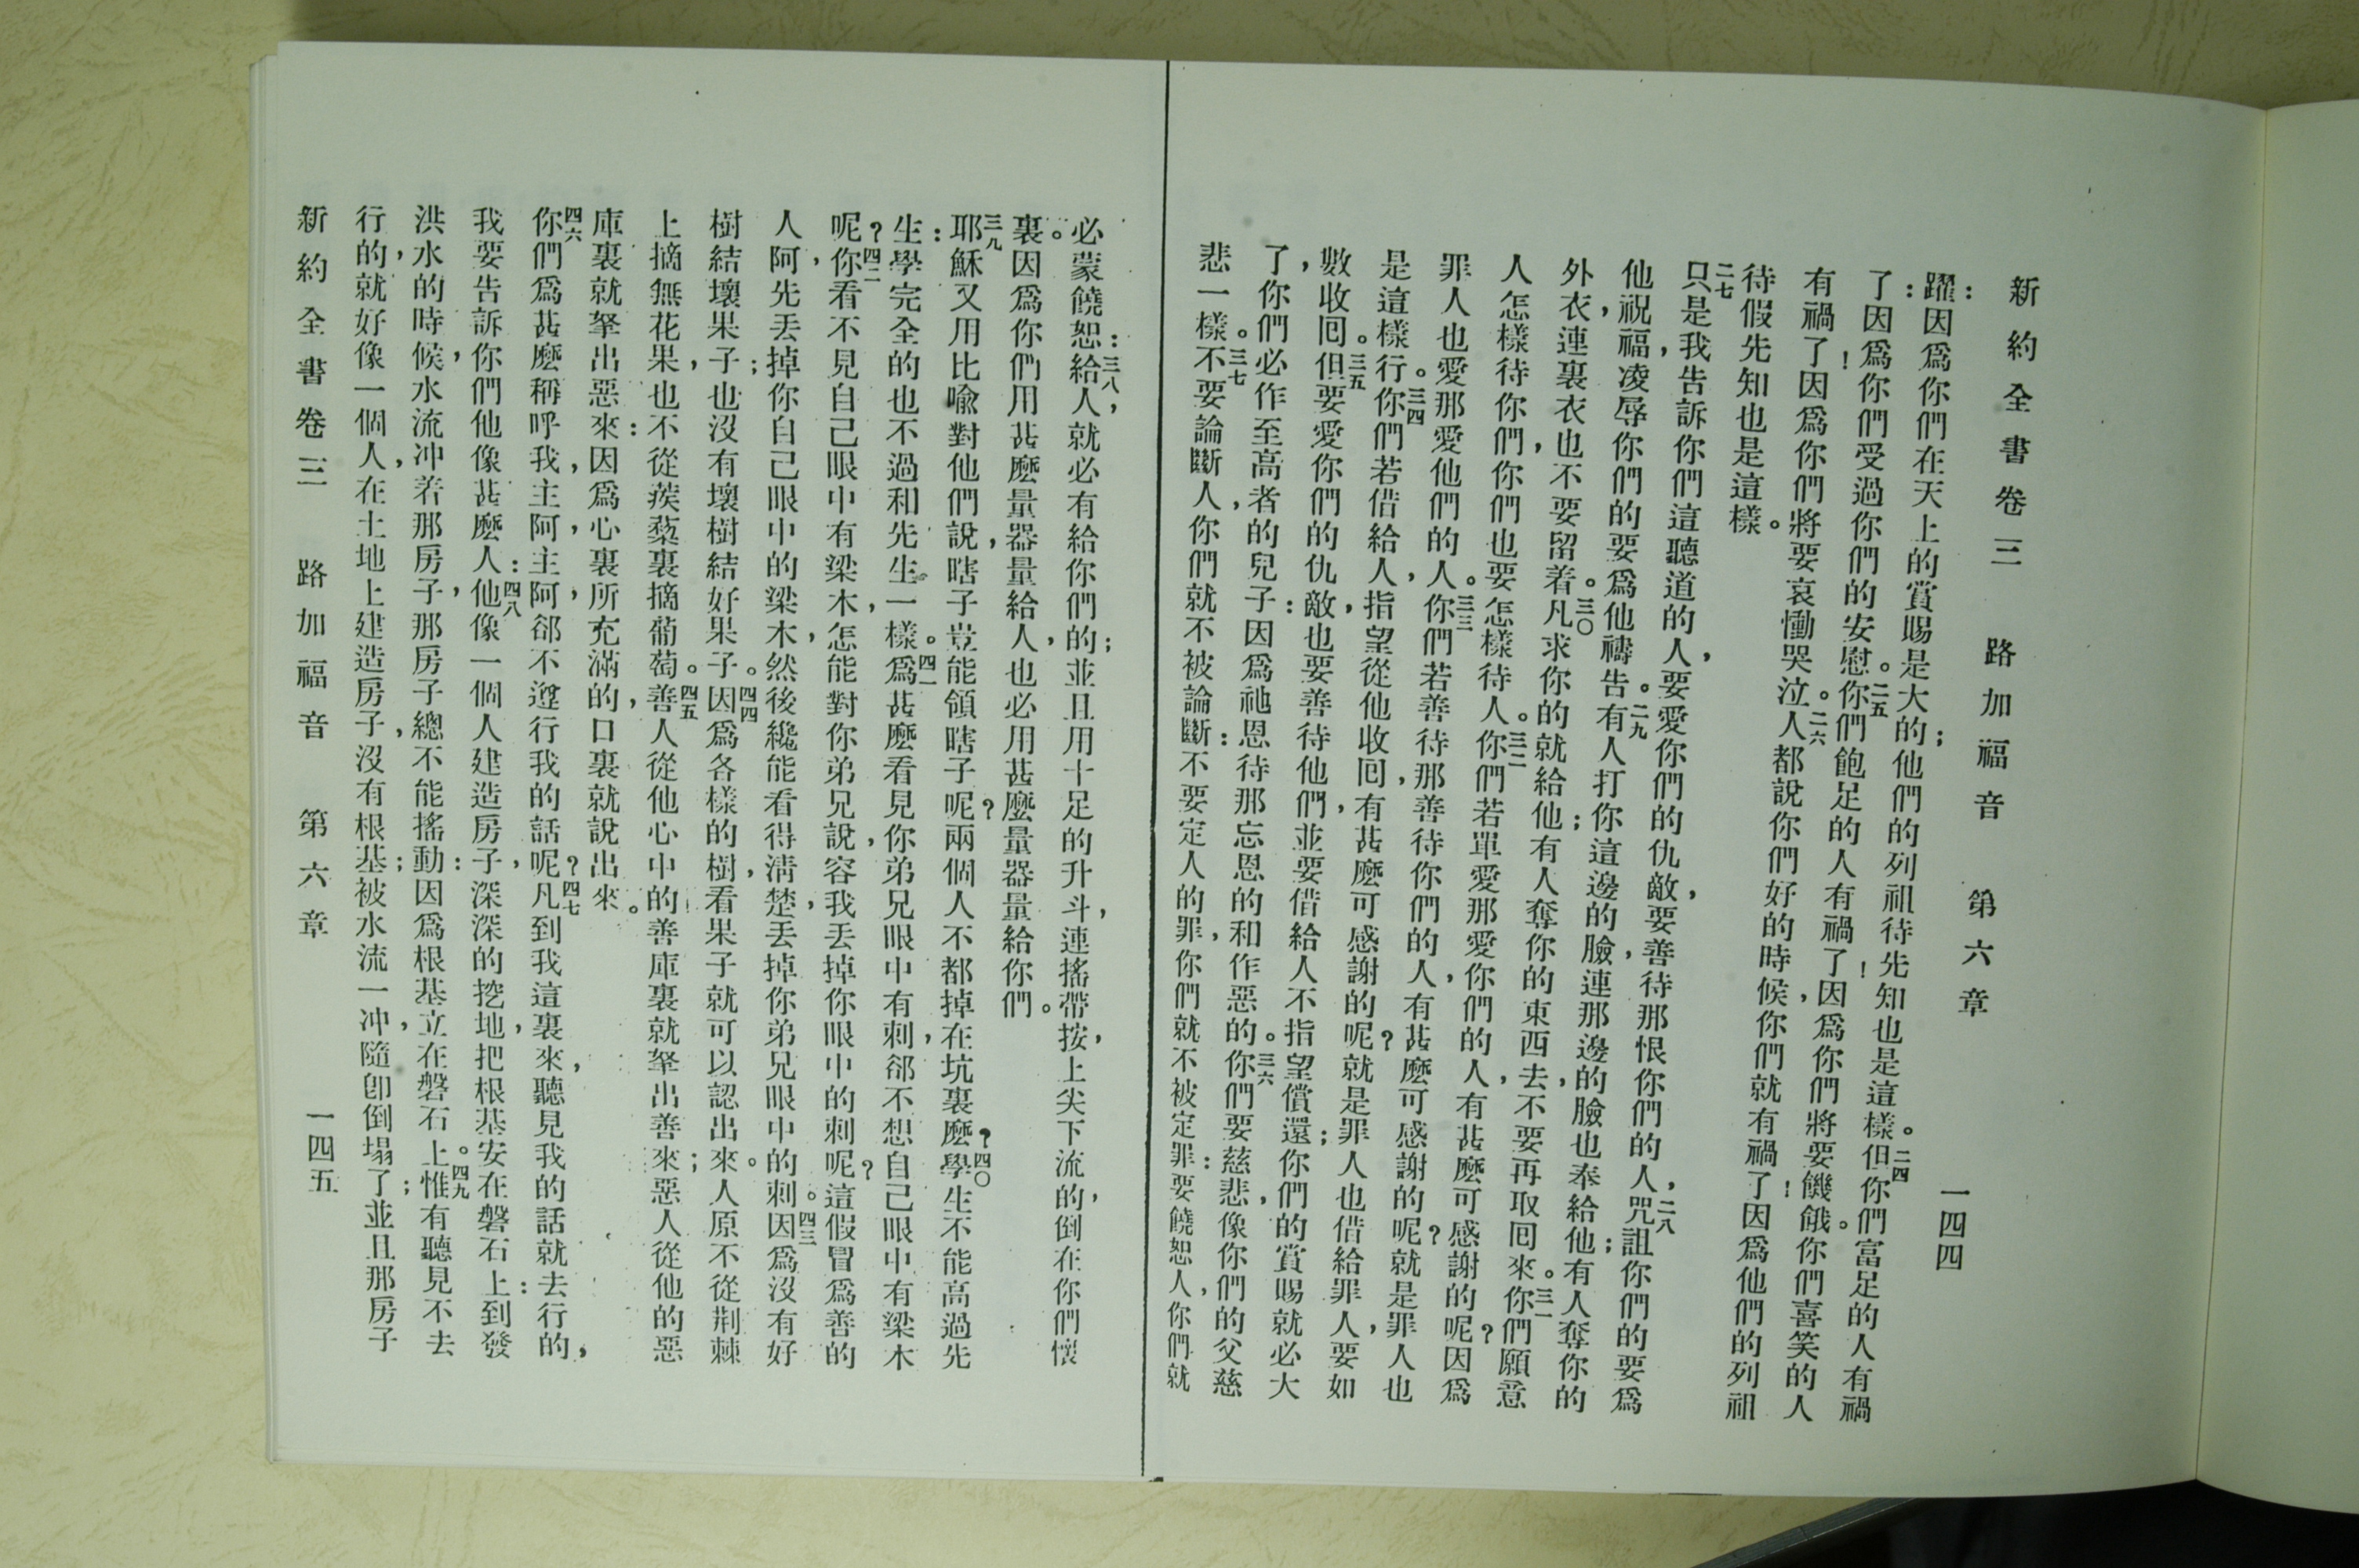 新約全書卷三　路加福音　第六章　一四四
躍：因爲你們在天上的賞賜是大的；他們的列祖待先知也是這樣。二四但你們富足的人有禍
了：因爲你們受過你們的安慰。二五你們飽足的人有禍了！因爲你們將要饑餓。你們喜笑的人
有禍了！因爲你們將要哀慟哭泣。二六人都說你們好的時候，你們就有禍了！因爲他們的列祖
待假先知也是這樣。
二七只是我告訴你們這聽道的人，要愛你們的仇敵，要善待那恨你們的人，二八咒詛你們的要爲
他祝福，凌辱你們的要爲他禱告。二九有人打你這邊的臉，連那邊的臉也奉給他；有人奪你的
外衣，連裏衣也不要留着。三〇凡求你的就給他；有人奪你的東西去，不要再取回來。三一你們願意
人怎樣待你們，你們也要怎樣待人。三二你們若單愛那愛你們的人，有甚麼可感謝的呢？因爲
罪人也愛那愛他們的人。三三你們若善待那善待你們的人，有甚麼可感謝的呢？就是罪人也
是這樣行。三四你們若借給人，指望從他收囘，有甚麼可感謝的呢？就是罪人也借給罪人，要如
數收囘。三五但要愛你們的仇敵，也要善待他們，並要借給人不指望償還；你們的賞賜就必大
了，你們必作至高者的兒子：因爲祂恩待那忘恩的和作惡的。三六你們要慈悲，像你們的父慈
悲一樣。三七不要論斷人，你們就不被論斷：不要定人的罪，你們就不被定罪：要饒恕人，你們就
必蒙饒恕：三八給人，就必有給你們的；並且用十足的升斗，連搖帶按，上尖下流的，倒在你們懷
裏。因爲你們用甚麼量器量給人，也必用甚麼量器量給你們。
三九耶穌又用比喩對他們說，瞎子豈能領瞎子呢？兩個人不都掉在坑裏麼？四〇學生不能高過先
生：學完全的也不過和先生一樣。四一爲甚麼看見你弟兄眼中有刺，郤不想自己眼中有梁木
呢？四二你看不見自己眼中有梁木，怎能對你弟兄說，容我丟掉你眼中的刺呢？這假冒爲善的
人阿，先丟掉你自己眼中的梁木，然後纔能看得淸楚，丟掉你弟兄眼中的刺。四三因爲沒有好
樹結壞果子；也沒有壞樹結好果子。四四因爲各樣的樹，看果子就可以認出來。人原不從荆棘
上摘無花果，也不從蒺藜裏摘葡萄。四五善人從他心中的善庫裏就拏出善來；惡人從他的惡
庫裏就拏出惡來：因爲心裏所充滿的，口裏就說出來。
四六你們爲甚麼稱呼我，主阿，主阿，郤不遵行我的話呢？四七凡到我這裏來，聽見我的話就去行的，
我要告訴你們他像甚麼人：四八他像一個人建造房子，深深的挖地，把根基安在磐石上：到發
洪水的時候，水流冲若那房子，那房子總不能搖動：因爲根基立在磐石上。四九惟有聽見不去
行的，就好像一個人，在土地上建造房子，沒有根基；被水流一冲，隨卽倒塌了；並且那房子
新約全書卷三　路加福音　第六章　一四五